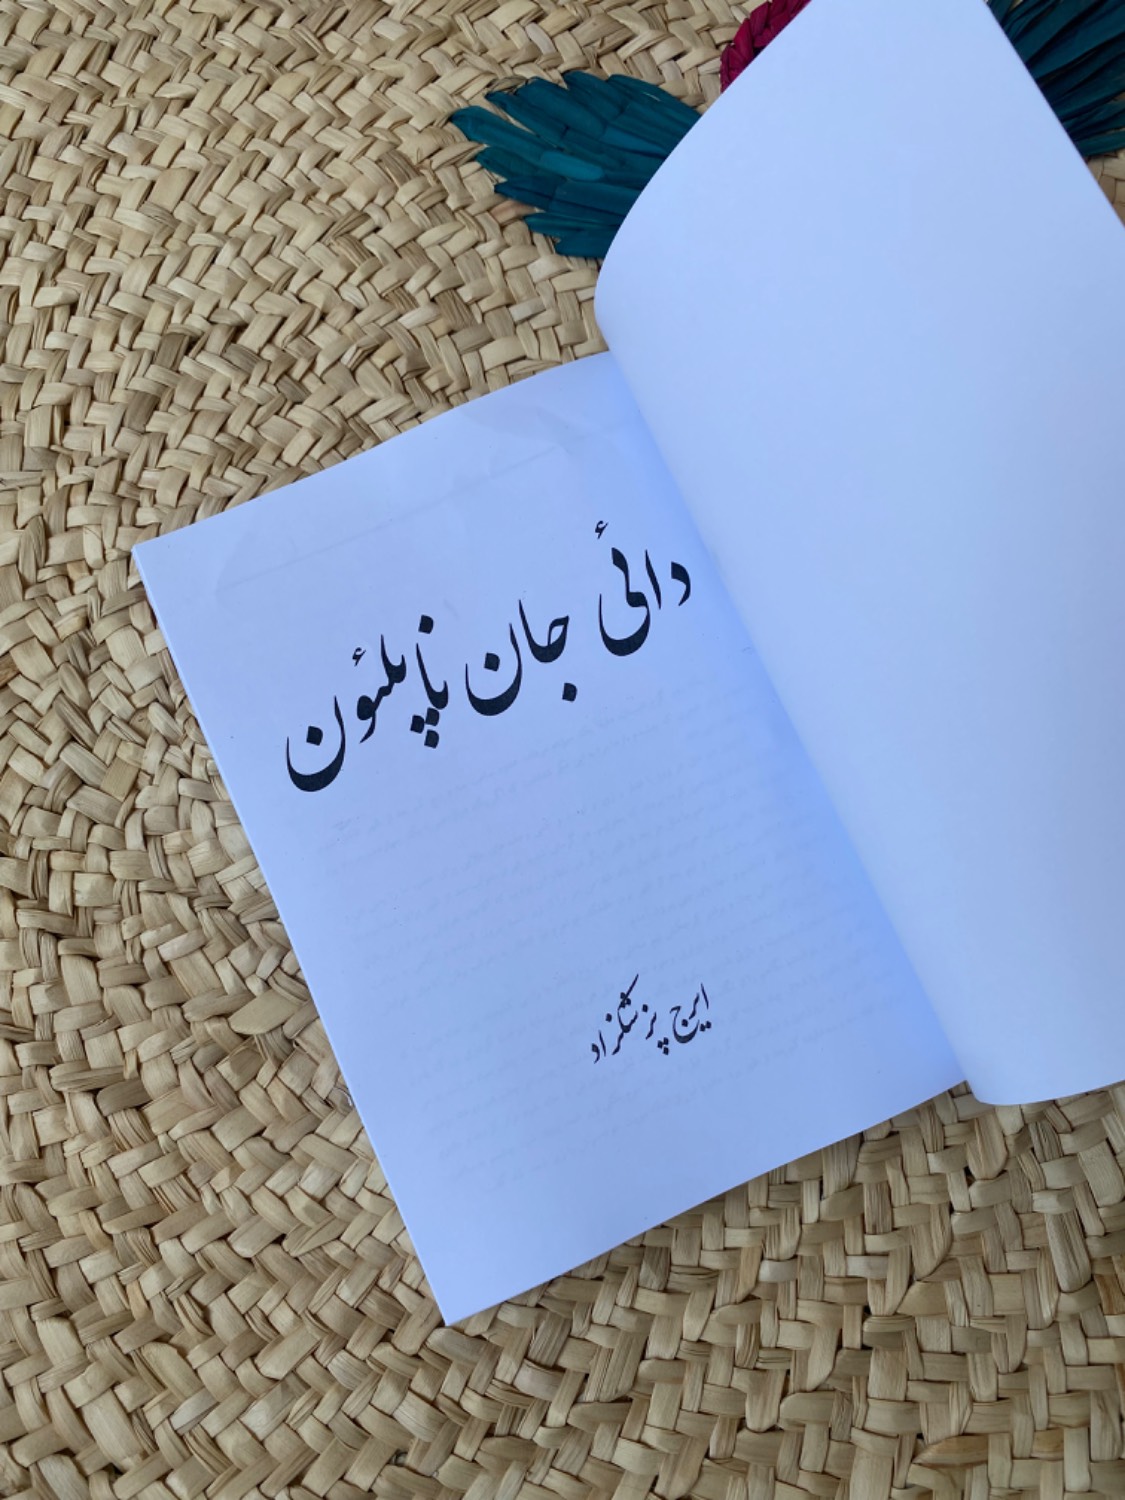 دائی جان ناپلئون
ایرج پزشکزاد